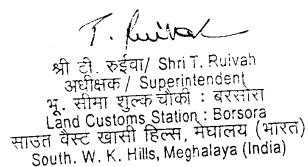 T. Ruivah
श्री टी. रुईवा/ Shri T. Ruivah
अधीक्षक / Superintendent
भू. सीमा शुल्क चौकी : बरसोरा
Land Customs Station : Borsora
साउत वैस्ट खासी हिल्स, मेघालय (भारत)
South. W. K. Hills, Meghalaya (India)